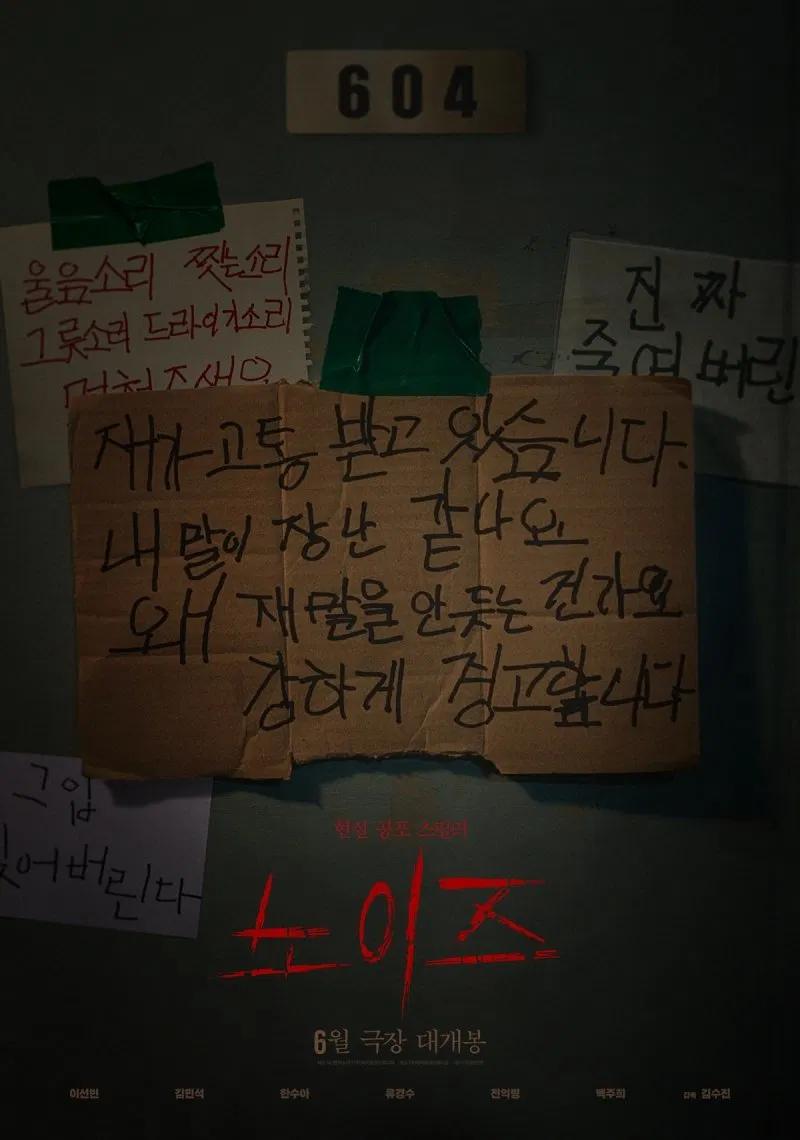 604
울음소리 찢는소리
그릇소리 드라이기소리
진짜
죽여버린
재가 고통 받고 있습니다.
내 말이 장난 같나요
왜 재 말을 안듯는 건가요
강하게 경고합니다
그 입
찢어버린다
현실 공포 스릴러
노이즈
6월 극장 대개봉
이선빈 김민석 한수아 류경수 전익령 백주희 감독 김수진